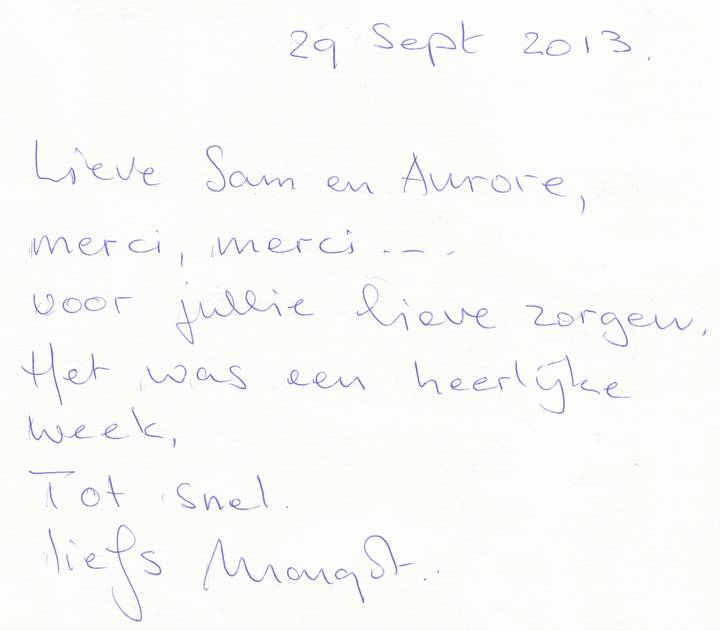 29 Sept 2013.
Lieve Sam en Aurore,
merci, merci ...
voor jullie lieve zorgen.
Het was een heerlijke
week,
Tot snel.
liefs